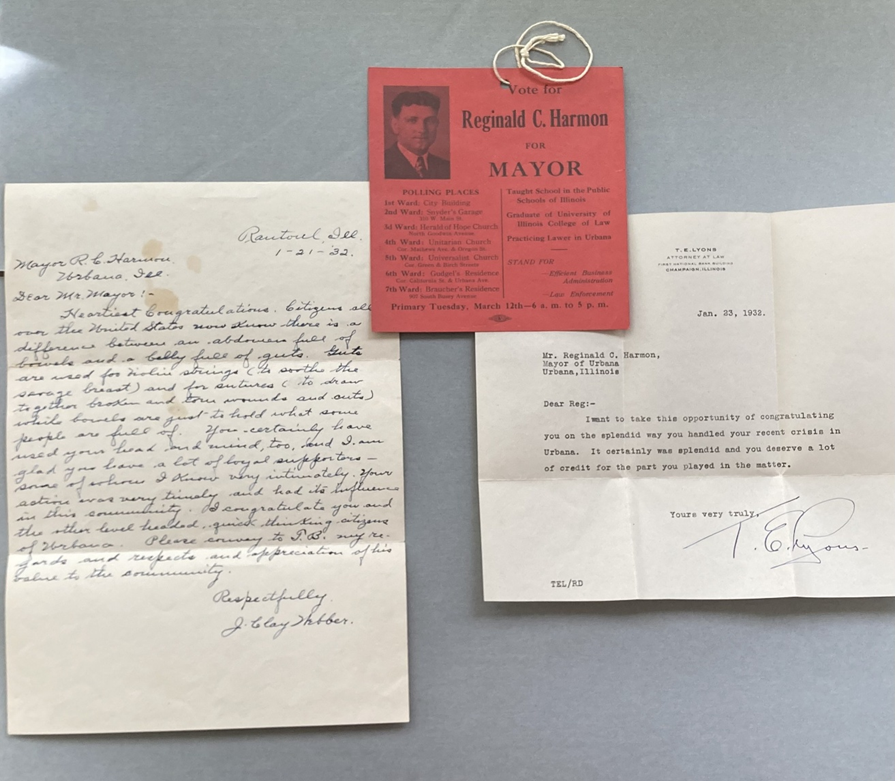 Rantoul, Ill.
1-21-'32.
Mayor R. C. Harmon,
Urbana, Ill.
Dear Mr. Mayor! -
Heartiest Congratulations. Citizens all
over the United States now know there is a
difference between an abdomen full of
bowels and a belly full of guts. Guts
are used for violin strings (to soothe the
savage breast) and for sutures (to draw
together broken and torn wounds and cuts)
while bowels are just to hold what some
people are full of. You certainly have
used your head and mind, too, and I am
glad you have a lot of loyal supporters -
some of whom I know very intimately. Your
action was very timely and had its influence
in this community. I congratulate you and
the other level headed, quick thinking citizens
of Urbana. Please convey to T.B. my re-
gards and respects and appreciation of his
value to the community.
Respectfully
J. Clay Webber.
Vote for
Reginald C. Harmon
FOR
MAYOR
POLLING PLACES
1st Ward: City Building
2nd Ward: Snyder's Garage
W. Main St.
3d Ward: Herald of Hope Church
North Goodwin Avenue
4th Ward: Unitarian Church
Cor. Mathews Ave. & Oregon St.
5th Ward: Universalist Church
Cor. Green & Birch Streets
6th Ward: Gudgel's Residence
Cor. California St. & Urbana Ave.
7th Ward: Braucher's Residence
South Busey Avenue
Taught School in the Public
Schools of Illinois
Graduate of University of
Illinois College of Law
Practicing Lawer in Urbana
STAND FOR
—Efficient Business
Administration
—Law Enforcement
Primary Tuesday, March 12th—6 a. m. to 5 p. m.
T. E. LYONS
ATTORNEY AT LAW
FIRST NATIONAL BANK BUILDING
CHAMPAIGN, ILLINOIS
Jan. 23, 1932.
Mr. Reginald C. Harmon,
Mayor of Urbana
Urbana,Illinois
Dear Reg:-
I want to take this opportunity of congratulating
you on the splendid way you handled your recent crisis in
Urbana. It certainly was splendid and you deserve a lot
of credit for the part you played in the matter.
Yours very truly,
T. E. Lyons-
TEL/RD